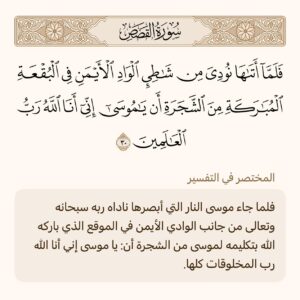 سُورَةُ القَصَصِ
فَلَمَّآ أَتَىٰهَا نُودِىَ مِن شَـٰطِئِ ٱلْوَادِ ٱلْأَيْمَنِ فِى ٱلْبُقْعَةِ
ٱلْمُبَـٰرَكَةِ مِنَ ٱلشَّجَرَةِ أَن يَـٰمُوسَىٰٓ إِنِّىٓ أَنَا ٱللَّهُ رَبُّ
ٱلْعَـٰلَمِينَ ٣٠
المختصر في التفسير
فلما جاء موسى النار التي أبصرها ناداه ربه سبحانه
وتعالى من جانب الوادي الأيمن في الموقع الذي باركه
الله بتكليمه لموسى من الشجرة أن: يا موسى إني أنا الله
رب المخلوقات كلها.